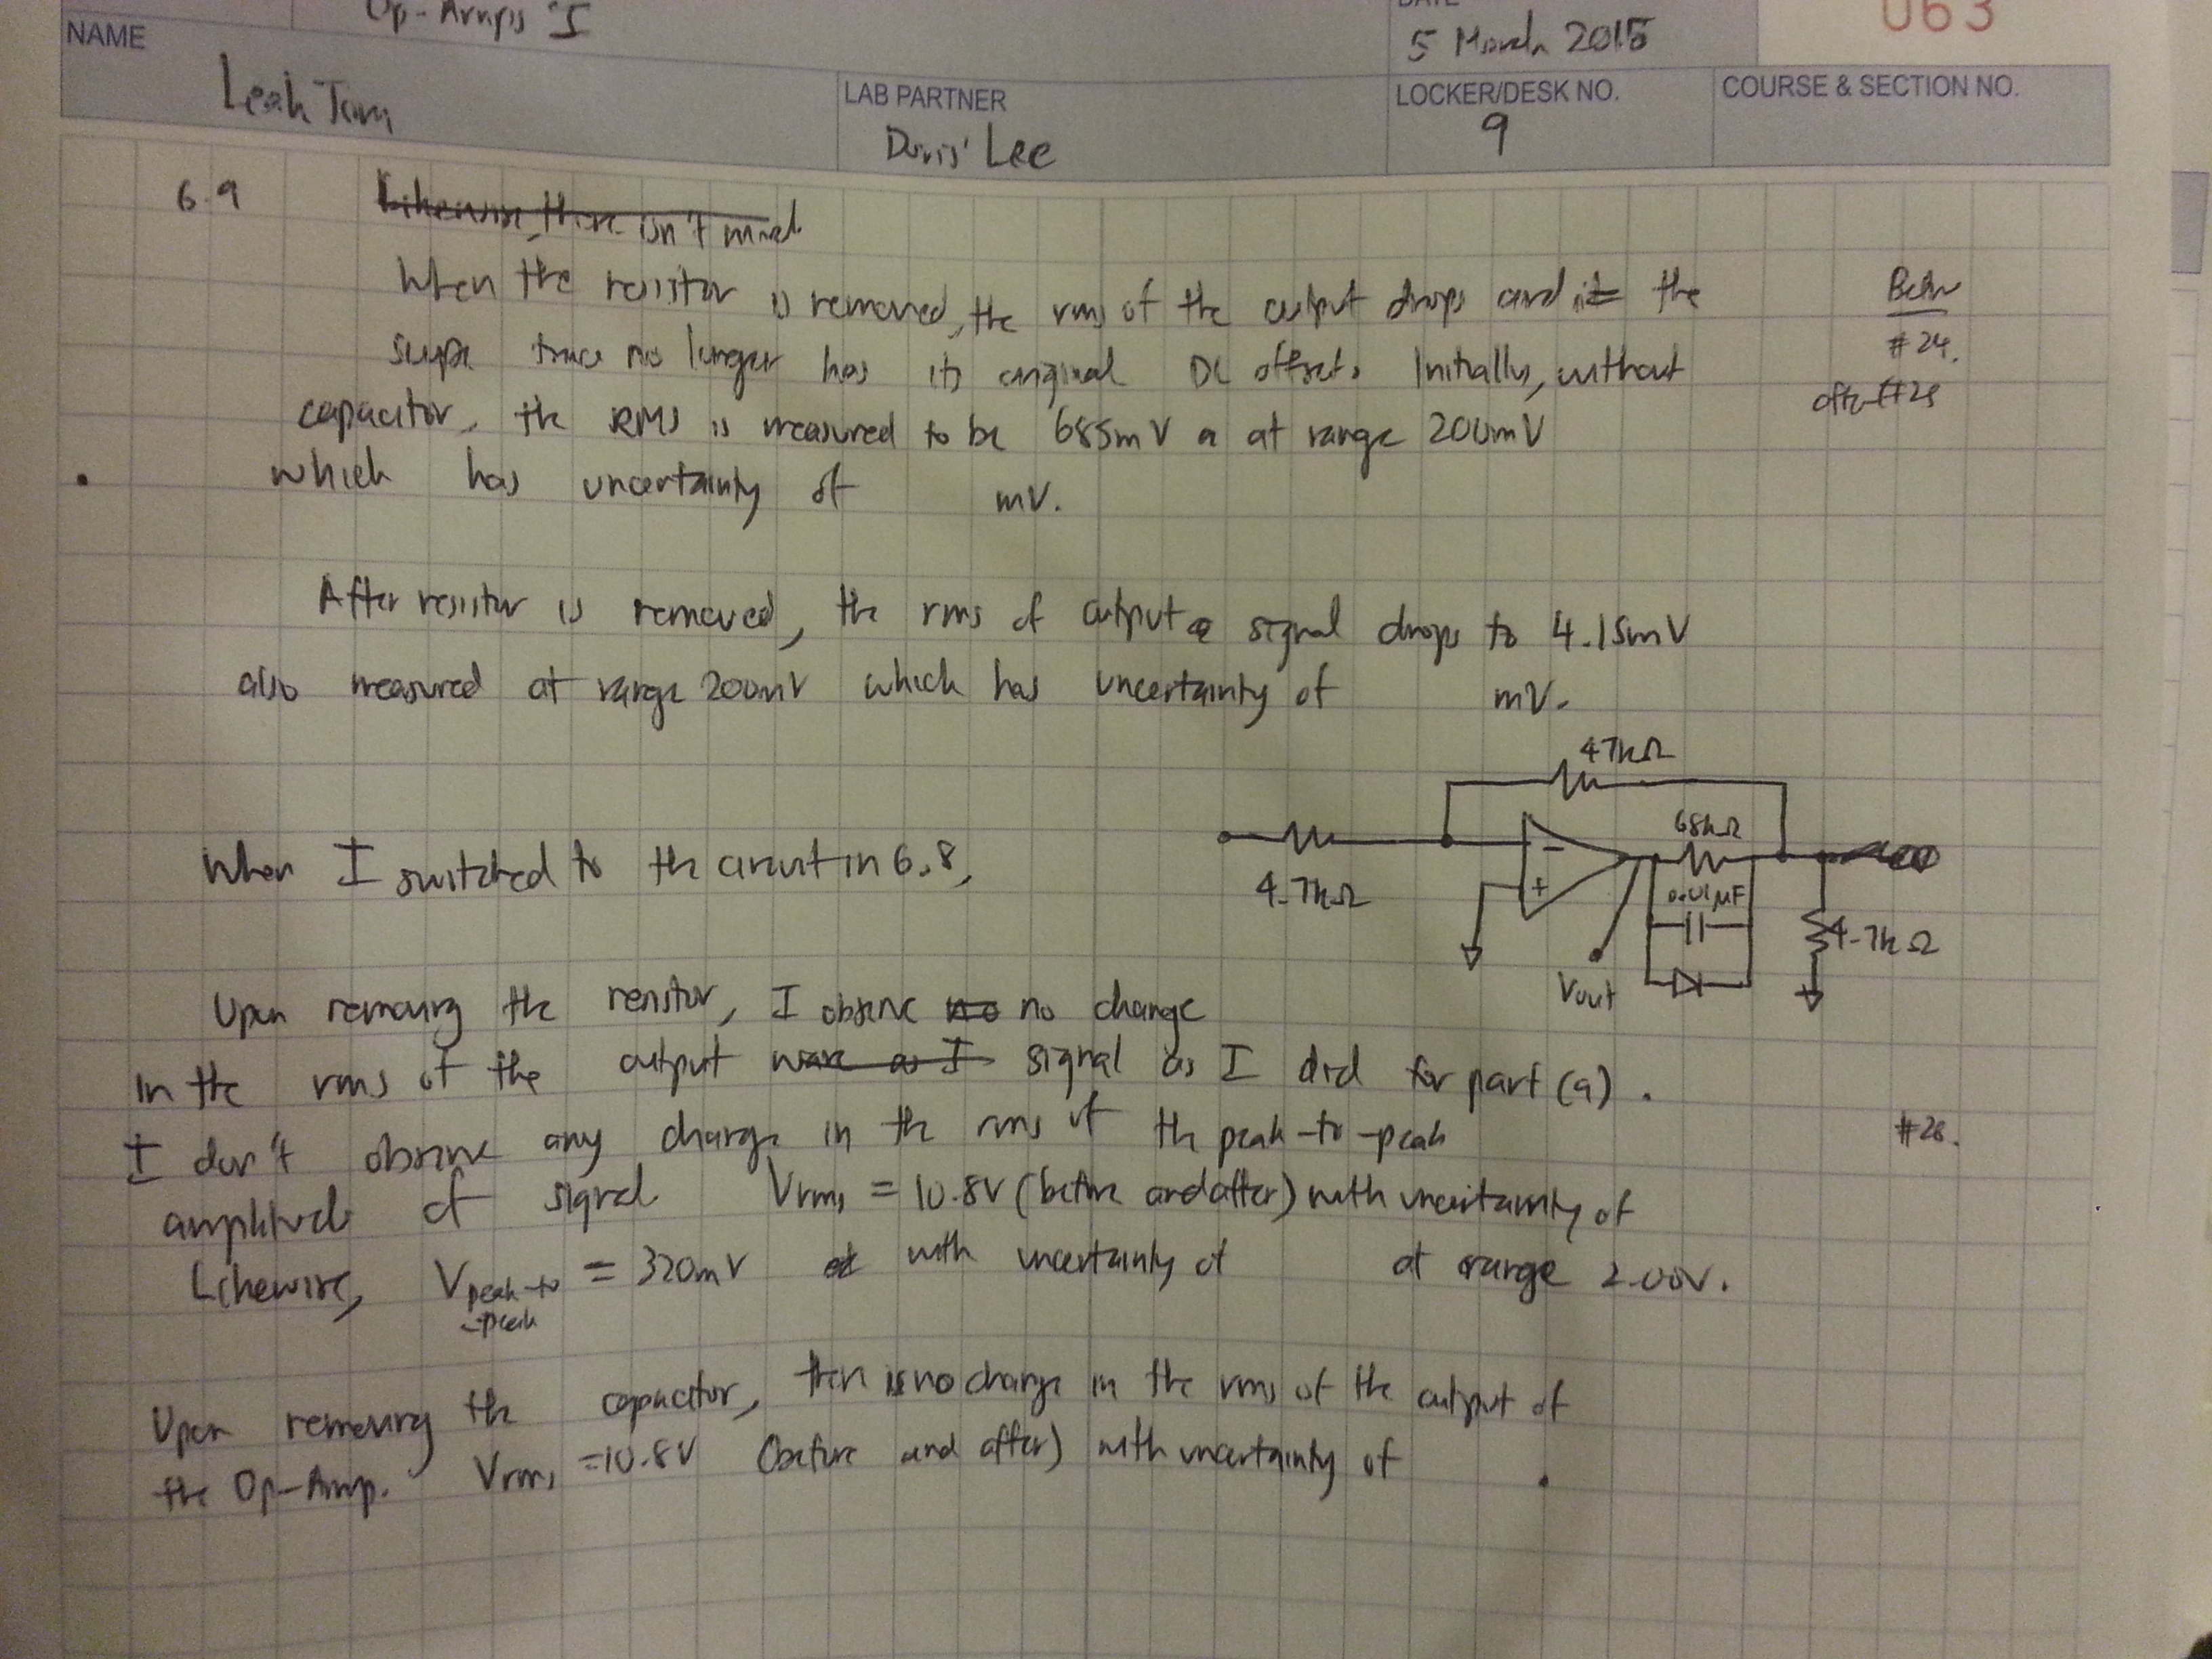 Op-Amps I
DATE
5 March 2015
063
NAME
Leah Tom
LAB PARTNER
Doris Lee
LOCKER/DESK NO.
9
COURSE & SECTION NO.
6.9
Likewise, there isn't much
When the resistor is removed, the rms of the output drops and it the
scope trace no longer has its original DC offset. Initially, without
capacitor, the RMS is measured to be 685mV a at range 200mV
which has uncertainty of mV.
#24.
After resistor is removed, the rms of output signal drops to 4.15mV
also measured at range 200mV which has uncertainty of mV.
47kΩ
68kΩ
When I switched to th circuit in 6.8,
4.7kΩ
0.01μF
4.7kΩ
Vout
Upon removing the resistor, I observe no no change
in the rms of the output wave as I signal as I did for part (a).
I don't observe any change in th rms of th peak-to-peak
#26.
amplitude of signal Vrms = 10.8V (before and after) with uncertainty of
Likewise, Vpeak-to-peak = 320mV at with uncertainty of at range 2.00V.
Upon removing the capacitor, there is no change in the rms of the output of
the Op-Amp. Vrms = 10.8V (before and after) with uncertainty of .